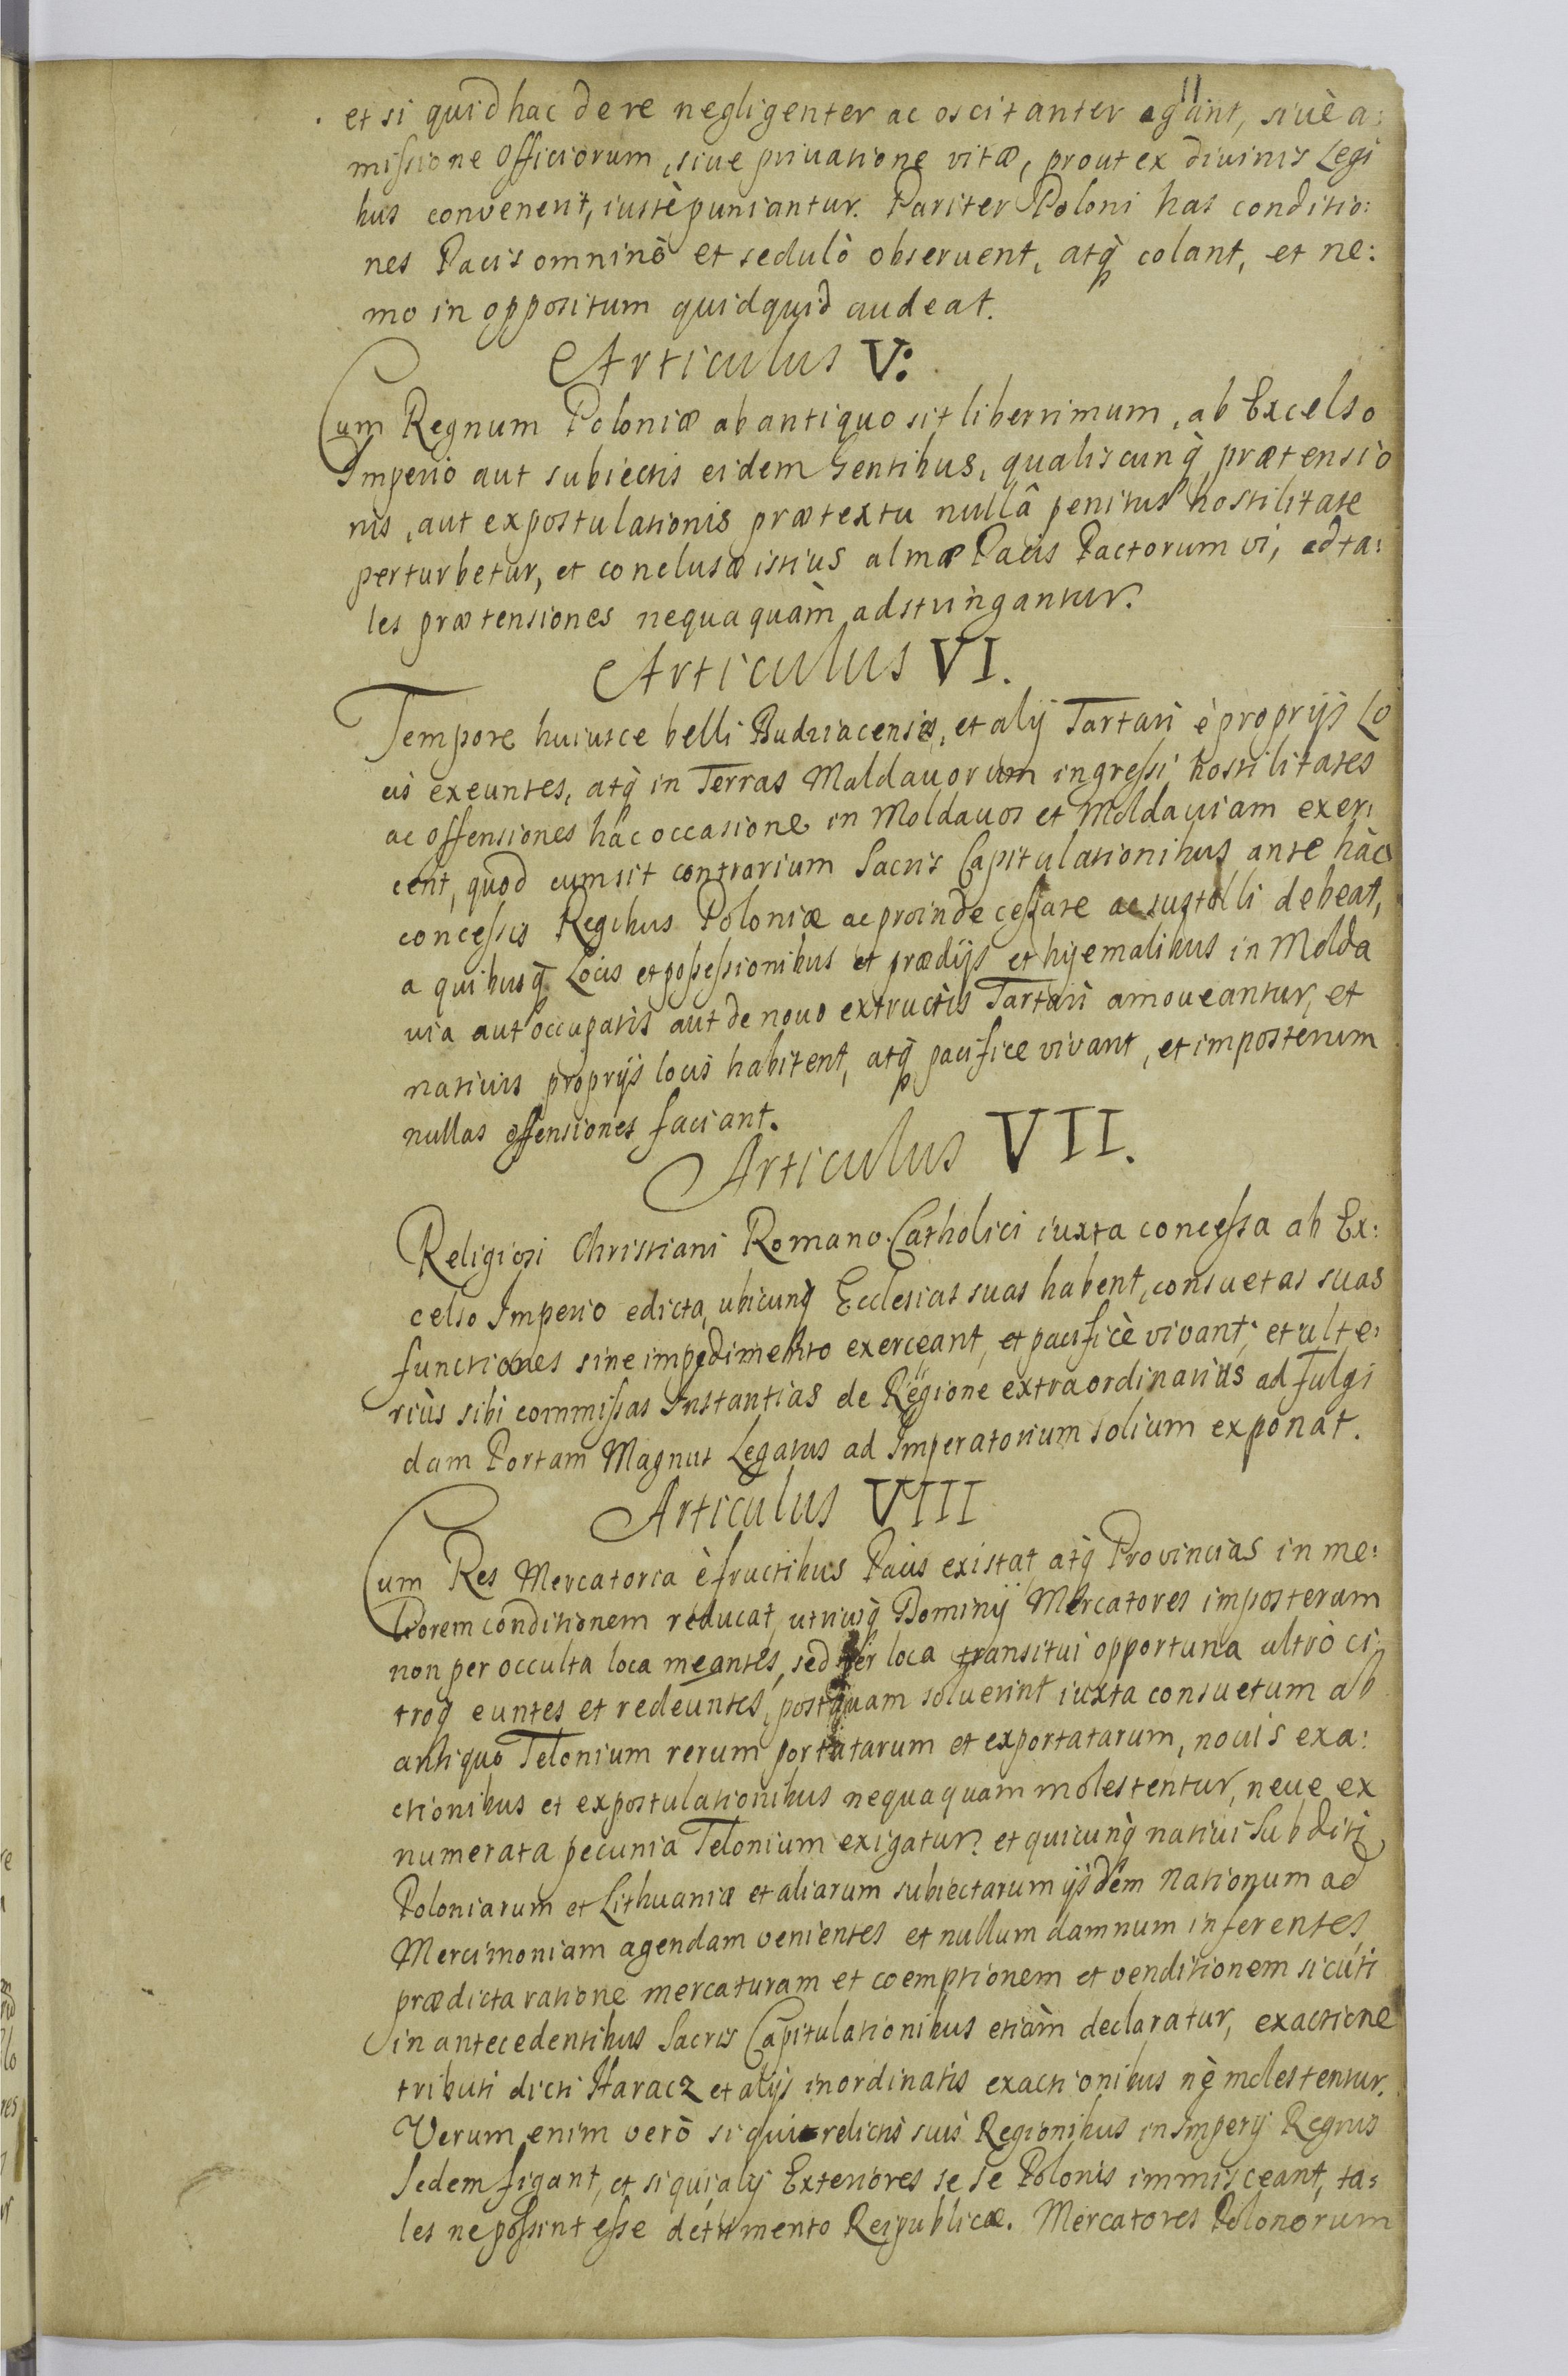 11
et si quid hac de re negligenter ac oscitanter agant, siuè a:
missione Officiorum, siue priuatione vitæ, prout ex diuinis Legi
bus convenerit, iustè puniantur. Pariter Poloni has conditio:
nes Pacis omninò et sedulò obseruent, atq̀ colant, et ne:
mo in oppositum quidquid audeat.
Articulus V:
Cum Regnum Poloniæ ab antiquo sit liberrimum, ab Excelso
Imperio aut subiectis eidem Gentibus, qualiscunq̀ prætensio
nis, aut expostulationis prætextu nullâ penitus hostilitate
perturbetur, et conclusæ istius almæ Pacis Pactorum vi, ad ta:
les prætensiones nequaquàm adstringantur.
Articulus VI.
Tempore huiusce belli Budziacenses, et alij Tartari è proprijs Lo
cis exeuntes, atq̀ in Terras Moldauorum ingressi hostilitates
ac offensiones hâc occasione in Moldauos et Moldauiam exer:
cent, quod cum sit contrarium Sacris Capitulationibus ante hàc
concessis Regibus Poloniæ ac proinde cessare ac sustolli debeat,
a quibusq̀ Locis et possessionibus et prædijs et hyemalibus in Molda
uia aut occupatis aut de nouo extructis Tartari amoueantur, et
natiuis proprijs locis habitent, atq̀ pacifice vivant, et imposterum
nullas offensiones faciant.
Articulus VII.
Religiosi Christiani Romano-Catholici iuxta concessa ab Ex:
celso Imperio edicta, ubicunq̀ Ecclesias suas habent, consuetas suas
functiones sine impedimento exerceant, et pacificè vivant, et ulte:
riùs sibi commissas Instantias de Regione extraordinarius ad Fulgi
dam Portam Magnus Legatus ad Imperatorium solium exponat.
Articulus VIII
Cum Res Mercatoria è fructibus Pacis existat atq̀ Provincias in me:
liorem conditionem reducat, utriusq̀ Dominij Mercatores imposterum
non per occulta loca meantes, sed per loca transitui opportuna ultrò ci
troq̀ euntes et redeuntes, postquam soluerint iuxta consuetum ab
antiquo Telonium rerum portatarum et exportatarum, nouis exa:
ctionibus et expostulationibus nequaquam molestentur, neue ex
numerata pecunia Telonium exigatur: et quicunq̀ natiui Subditi
Poloniarum et Lithuaniæ et aliarum subiectarum ijsdem Nationum ad
Mercimoniam agendam venientes et nullum damnum inferentes,
prædicta ratione mercaturam et coemptionem et venditionem sicuti
in antecedentibus Sacris Capitulationibus etiàm declaratur, exactione
tributi dicti Haracz et alijs inordinatis exactionibus nè molestentur.
Verum enim verò si qui relictis suis Regionibus in Imperij Regnis
Sedem figant, et si qui alij Exteriores se se Polonis immisceant, ta:
les ne possint esse detrimento Reipublicæ. Mercatores Polonorum